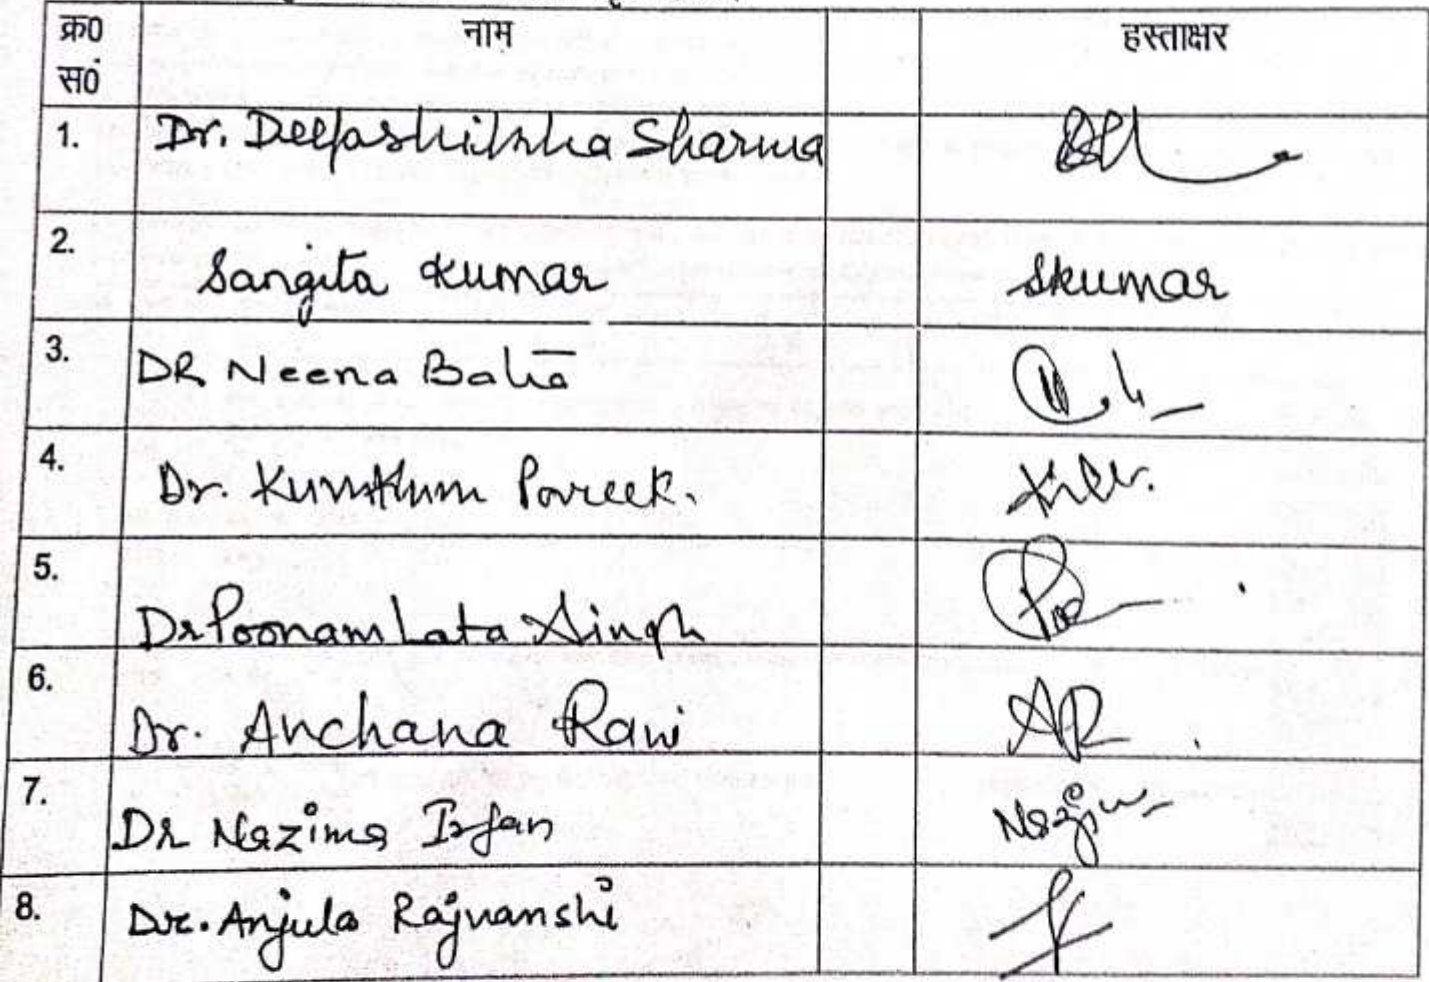 क्र० नाम हस्ताक्षर
स०ं
1. Dr. Deepashiksha Sharma
2. Sangita Kumar Skumar
3. DR Neena Batra
4. Dr. Kumkum Pareek.
5. Dr Poonam Lata Singh
6. Dr. Archana Rani AR
7. Dr Nazima Irfan Nazima
8. Dr. Anjula Rajvanshi